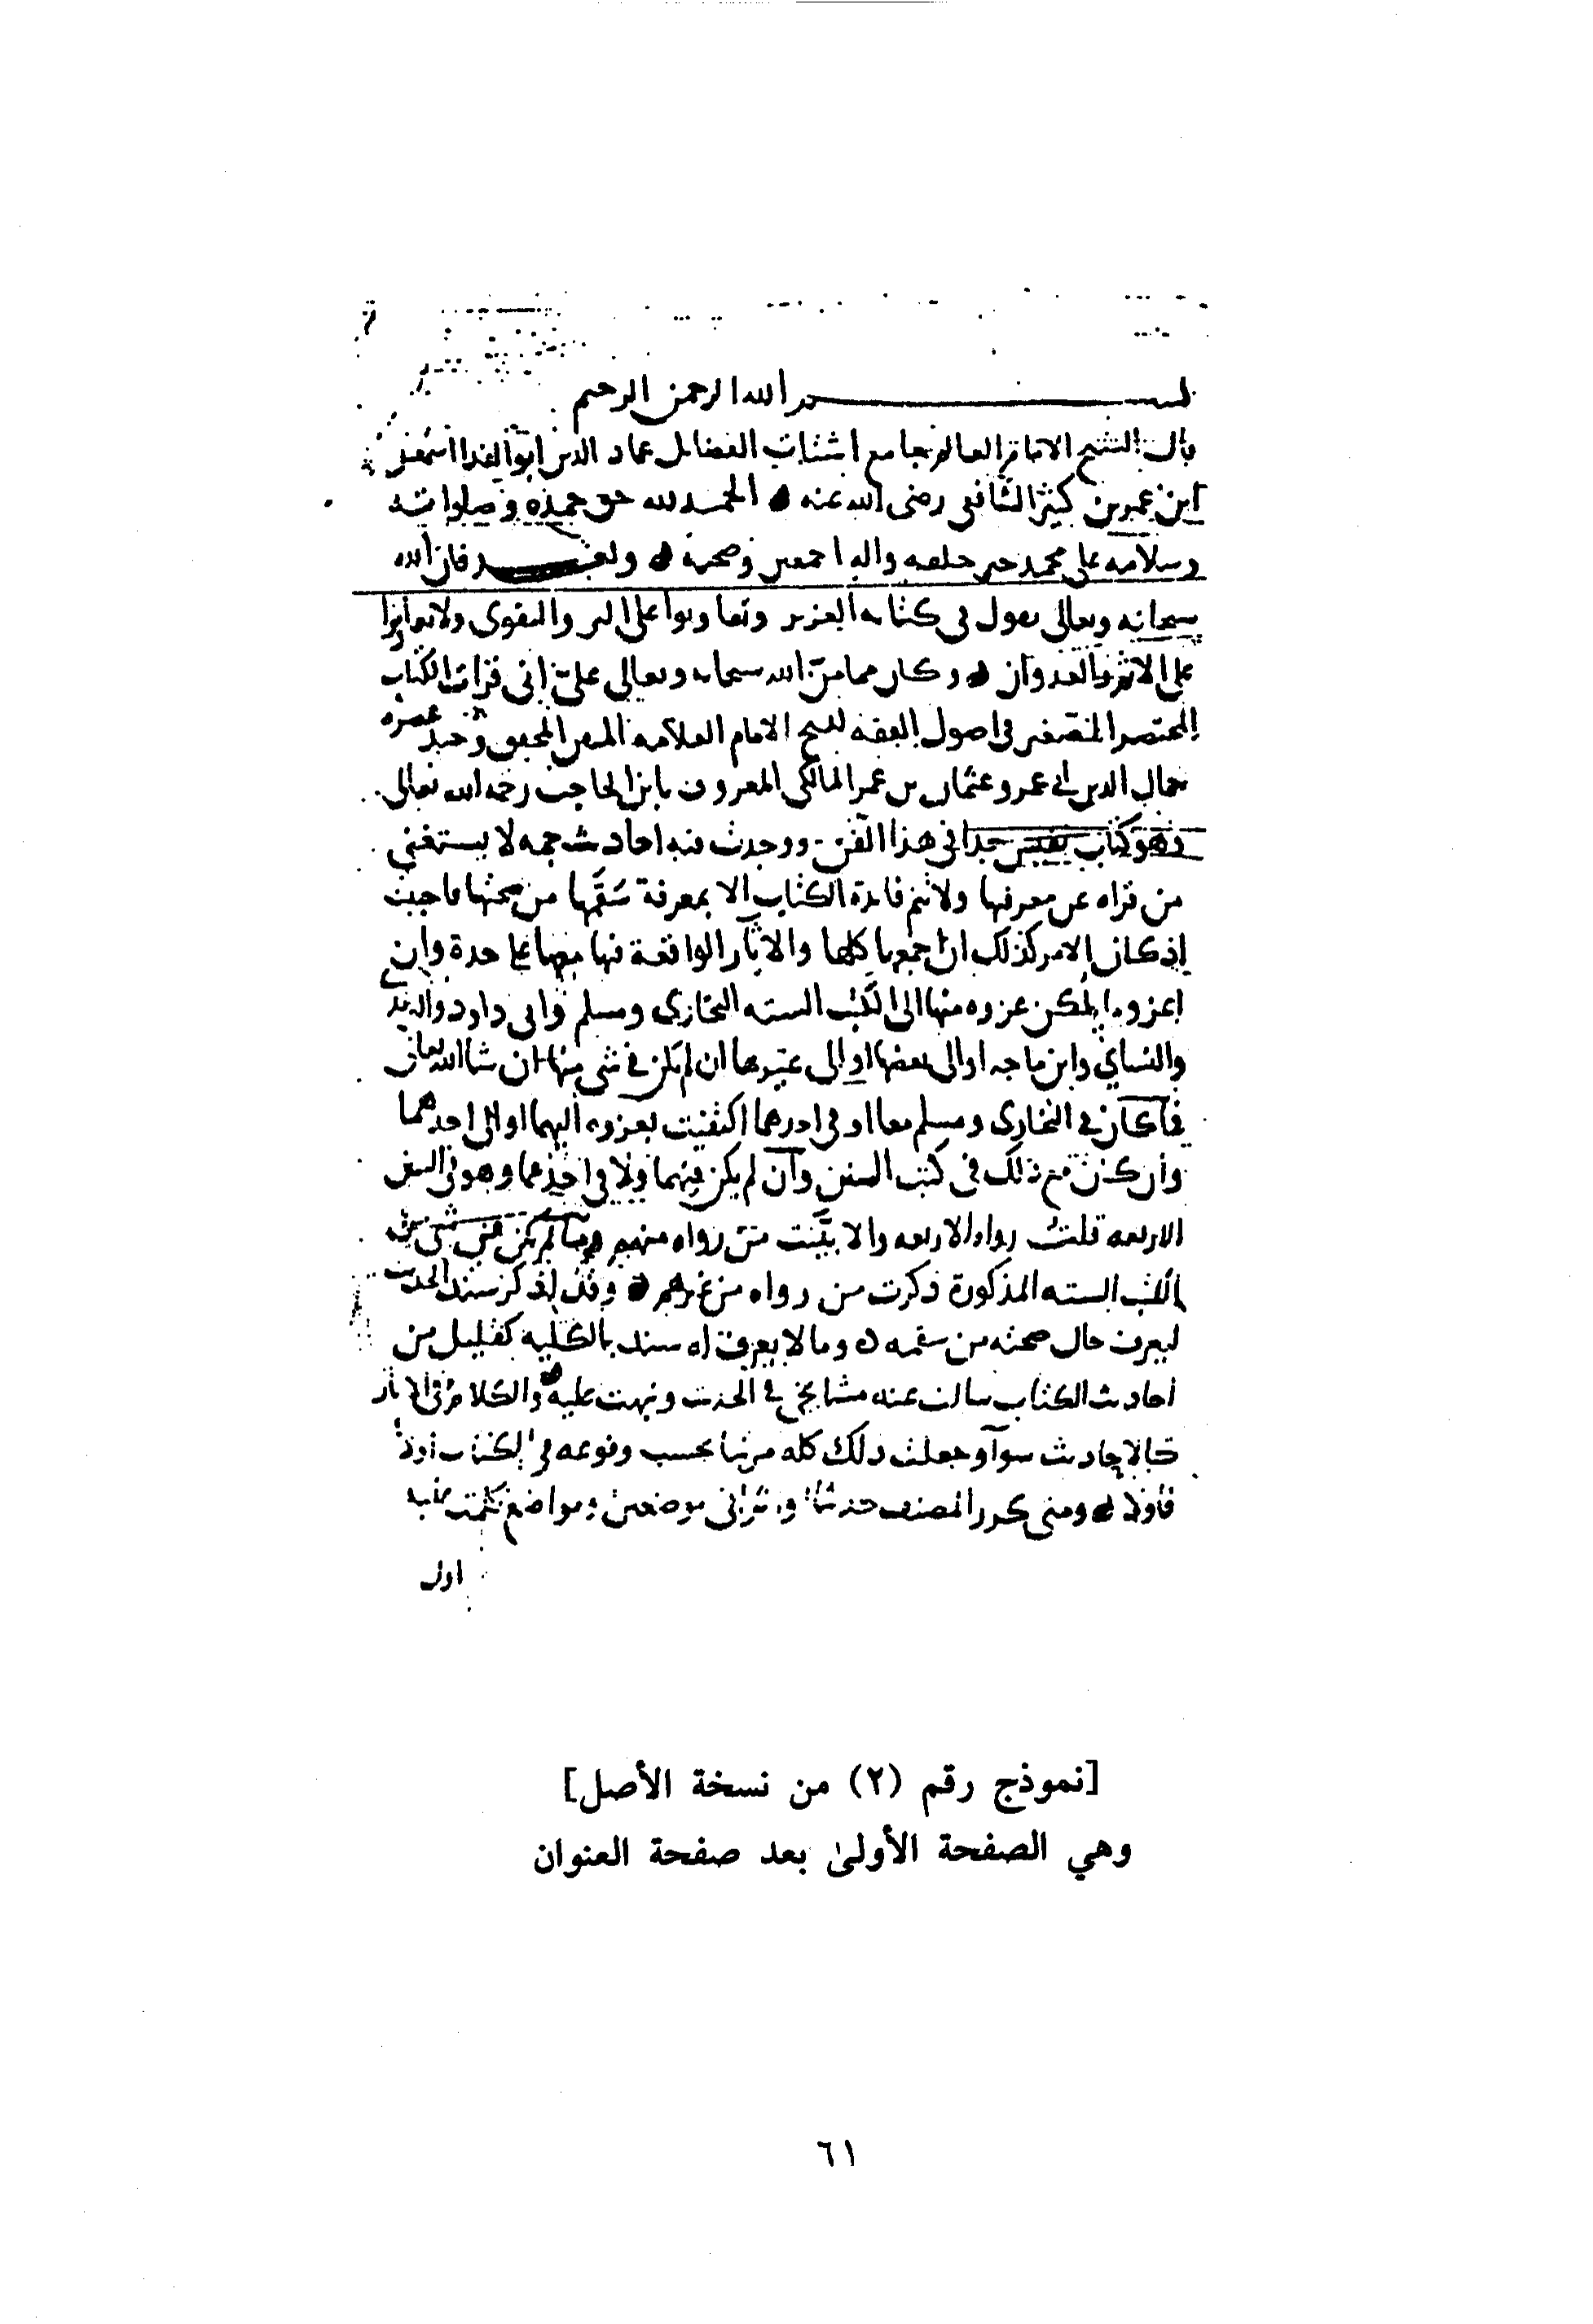 بسم الله الرحمن الرحيم
قال الشيخ الامام العالم جامع اشتات الفضائل عماد الدين ابو الفدا اسمعيل
ابن عمر بن كثير الشافعى رضى الله عنه الحمد لله حق حمده وصلواته
وسلامه على محمد خير خلقه واله اجمعين وصحبه وبعد فان الله
سبحانه وتعالى يقول فى كتابه العزيز وتعاونوا على البر والتقوى ولا تعاونوا
على الاثم والعدوان وكان مما من الله سبحانه وتعالى على انى قرات الكتاب
المختصر الصغير فى اصول الفقه للشيخ الامام العلامه المحقق وحيد عصره
جمال الدين ابى عمرو عثمان بن عمر المالكى المعروف بابن الحاجب رحمه الله تعالى
وهو كتاب نفيس جدا فى هذا الفن ووجدت فيه احاديث جمه لا يستغنى
من قراه عن معرفتها ولا تتم فايدة الكتاب الا بمعرفة سقمها من صحتها فاحببت
اذ كان الامر كذلك ان اجمعها كلها والاثار الواقعة فيها معها على حدة وان
اعزو ما يمكن عزوه منها الى الكتب السته البخارى ومسلم وابى داود والترمذى
والنساي وابن ماجه او الى بعضها او الى غيرها ان لم يكن فى شى منها ان شا الله تعالى
فما كان فى البخارى ومسلم معا او فى احدهما اكتفيت بعزوه اليهما او الى احدهما
وان كان مع ذلك فى كتب السنن وان لم يكن فيهما ولا فى احدهما وهو فى السنن
الاربعه قلت رواه الاربعه والا بينت من رواه منهم وما لم يكن فى شى من
الكتب السته المذكورة ذكرت من رواه من غيرهم وقد اذكر سند الحديث
ليعرف حال صحته من سقمه وما لا يعرف له سند بالكليه كقليل من
احاديث الكتاب سالت عنه مشايخى فى الحديث ونبهت عليه والكلام فى الاثار
كالاحاديث سوآ وجعلت ذلك كله مرتبا بحسب وقوعه فى الكتاب اولا
فاولا ومتى كرر المصنف حديثا او اثرا فى موضعين ومواضع تكلمت عليه
اول
[نموذج رقم (٢) من نسخة الأصل]
وهي الصفحة الأولىٰ بعد صفحة العنوان
٦١